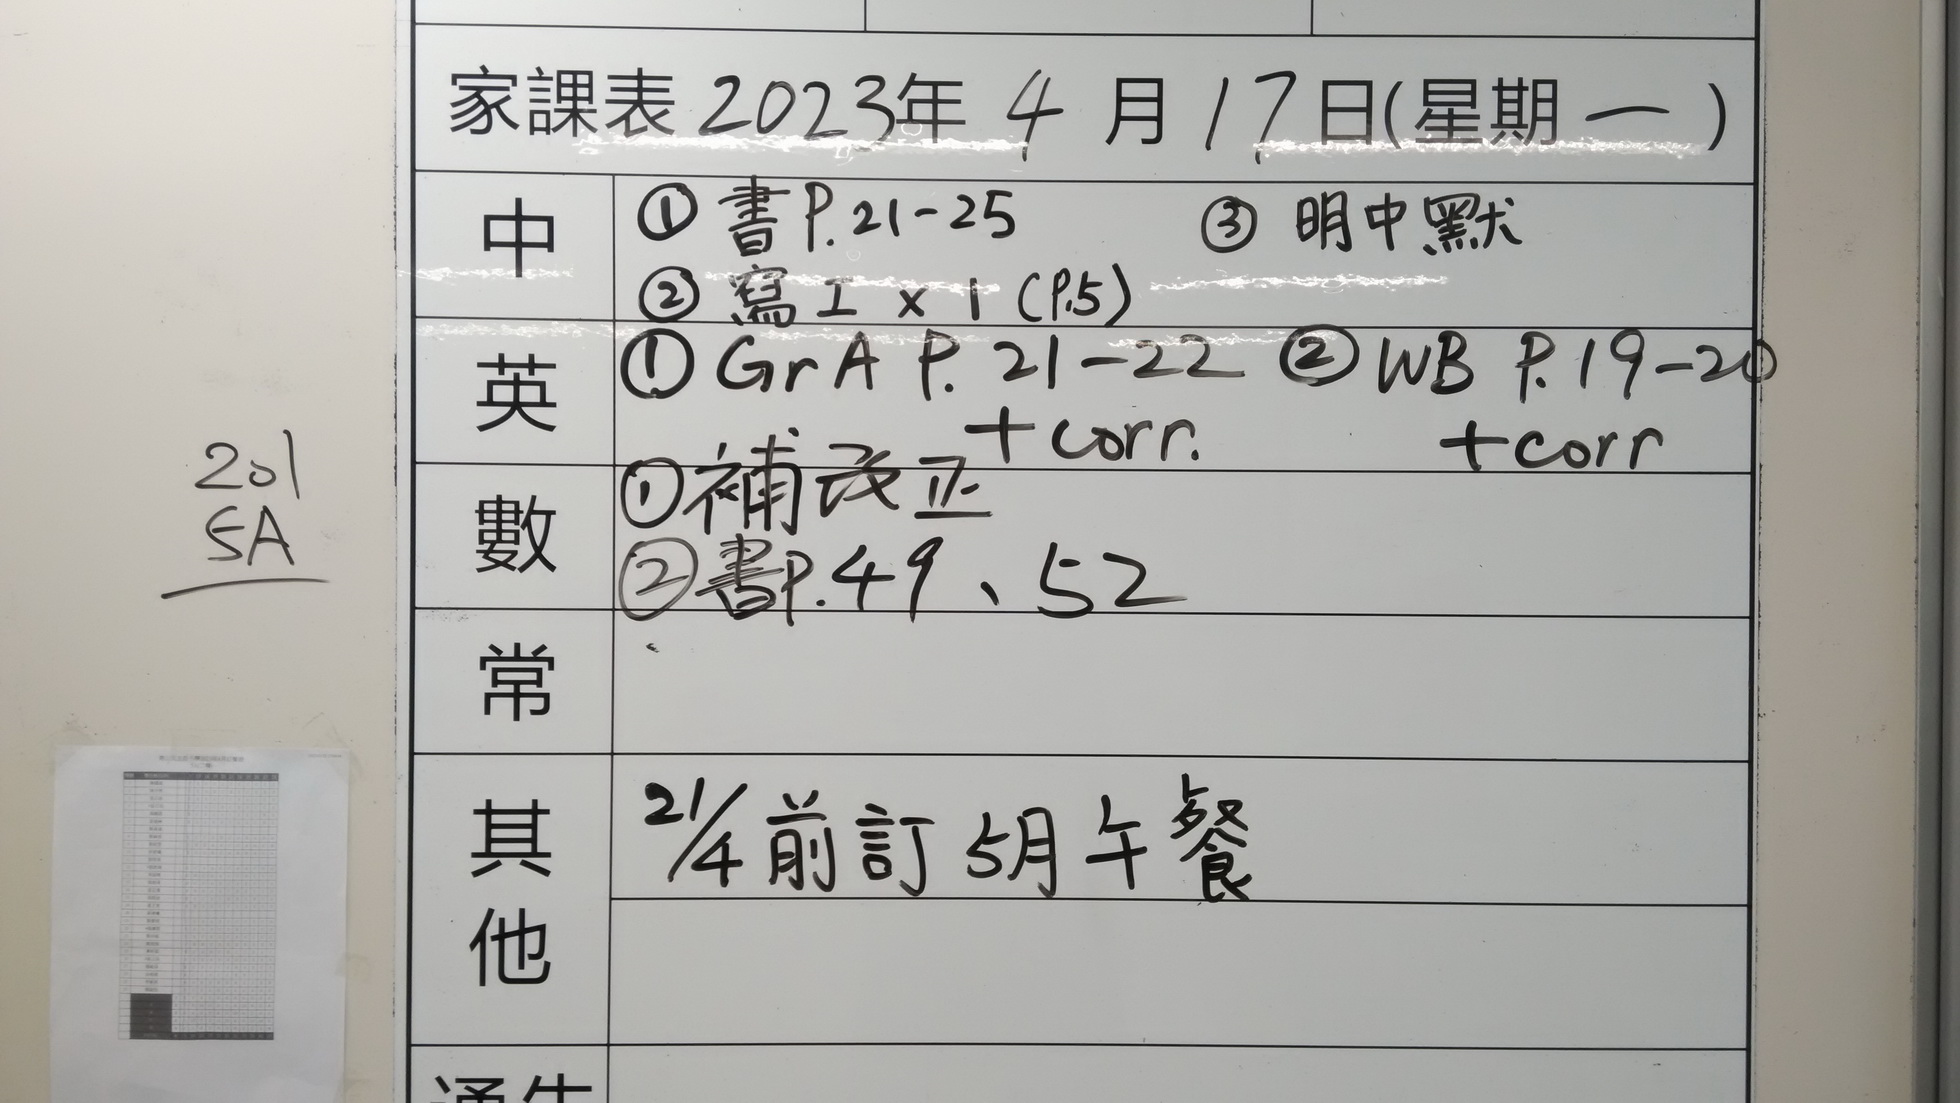 家課表 2023年 4 月 17日(星期一)
中
① 書P.21-25 ③ 明中默
② 寫工 x 1 (P.5)
英
① GrA P. 21-22 ② WB P. 19-20
+corr. +corr
數
①補改正
②書P.49、52
常
其他
21/4前訂 5月午餐
201
5A